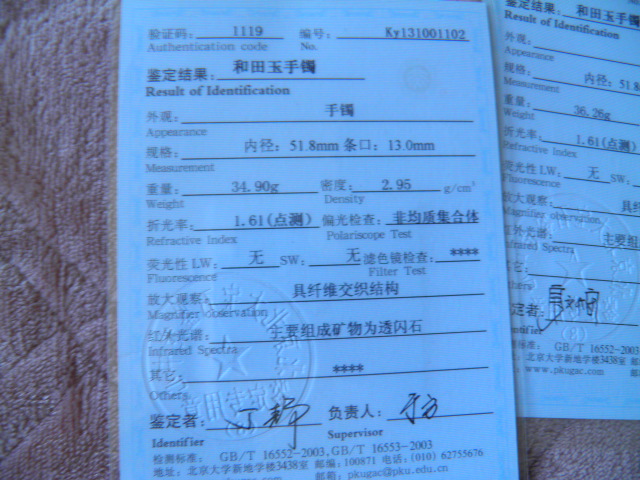 验证码： 1119 编号： Ky131001102
Authentication code No.
鉴定结果： 和田玉手镯
Result of Identification
外观： 手镯
Appearance
规格： 内径：51.8mm 条口：13.0mm
Measurement
重量： 34.90g 密度： 2.95 g/cm³
Weight Density
折光率： 1.61(点测) 偏光检查： 非均质集合体
Refractive Index Polariscope Test
荧光性 LW： 无 SW： 无 滤色镜检查： ****
Fluorescence Filter Test
放大观察： 具纤维交织结构
Magnifier observation
红外光谱： 主要组成矿物为透闪石
Infrared Spectra
其它： ****
Others
鉴定者： 负责人：
Identifier Supervisor
检测标准： GB/T 16552-2003,GB/T 16553-2003
地址：北京大学新地学楼3438室 邮编：100871 电话：(010) 62755676
邮箱：pkugac@pku.edu.cn
鉴定结果： 和田玉手镯
Result of Identification
外观：
Appearance
规格： 内径：51.8
Measurement
重量： 36.26g
Weight
折光率： 1.61(点测)
Refractive Index
荧光性 LW： 无 SW：
Fluorescence
放大观察： 具纤
Magnifier observation
红外光谱： 主要组
Infrared Spectra
其它：
定者：
Identifier
检测标准： GB/T 16552-2003
北京大学新地学楼3438室 邮
www.pkugac.com